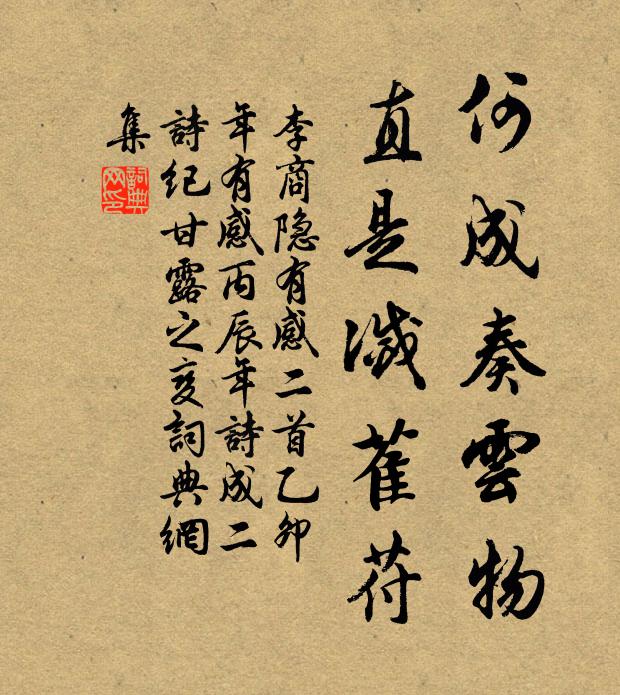 何成奏雲物
直是滅萑苻
李商隐有感二首乙卯
年有感丙辰年詩成二
詩紀甘露之变詞典網
集
詞典网印